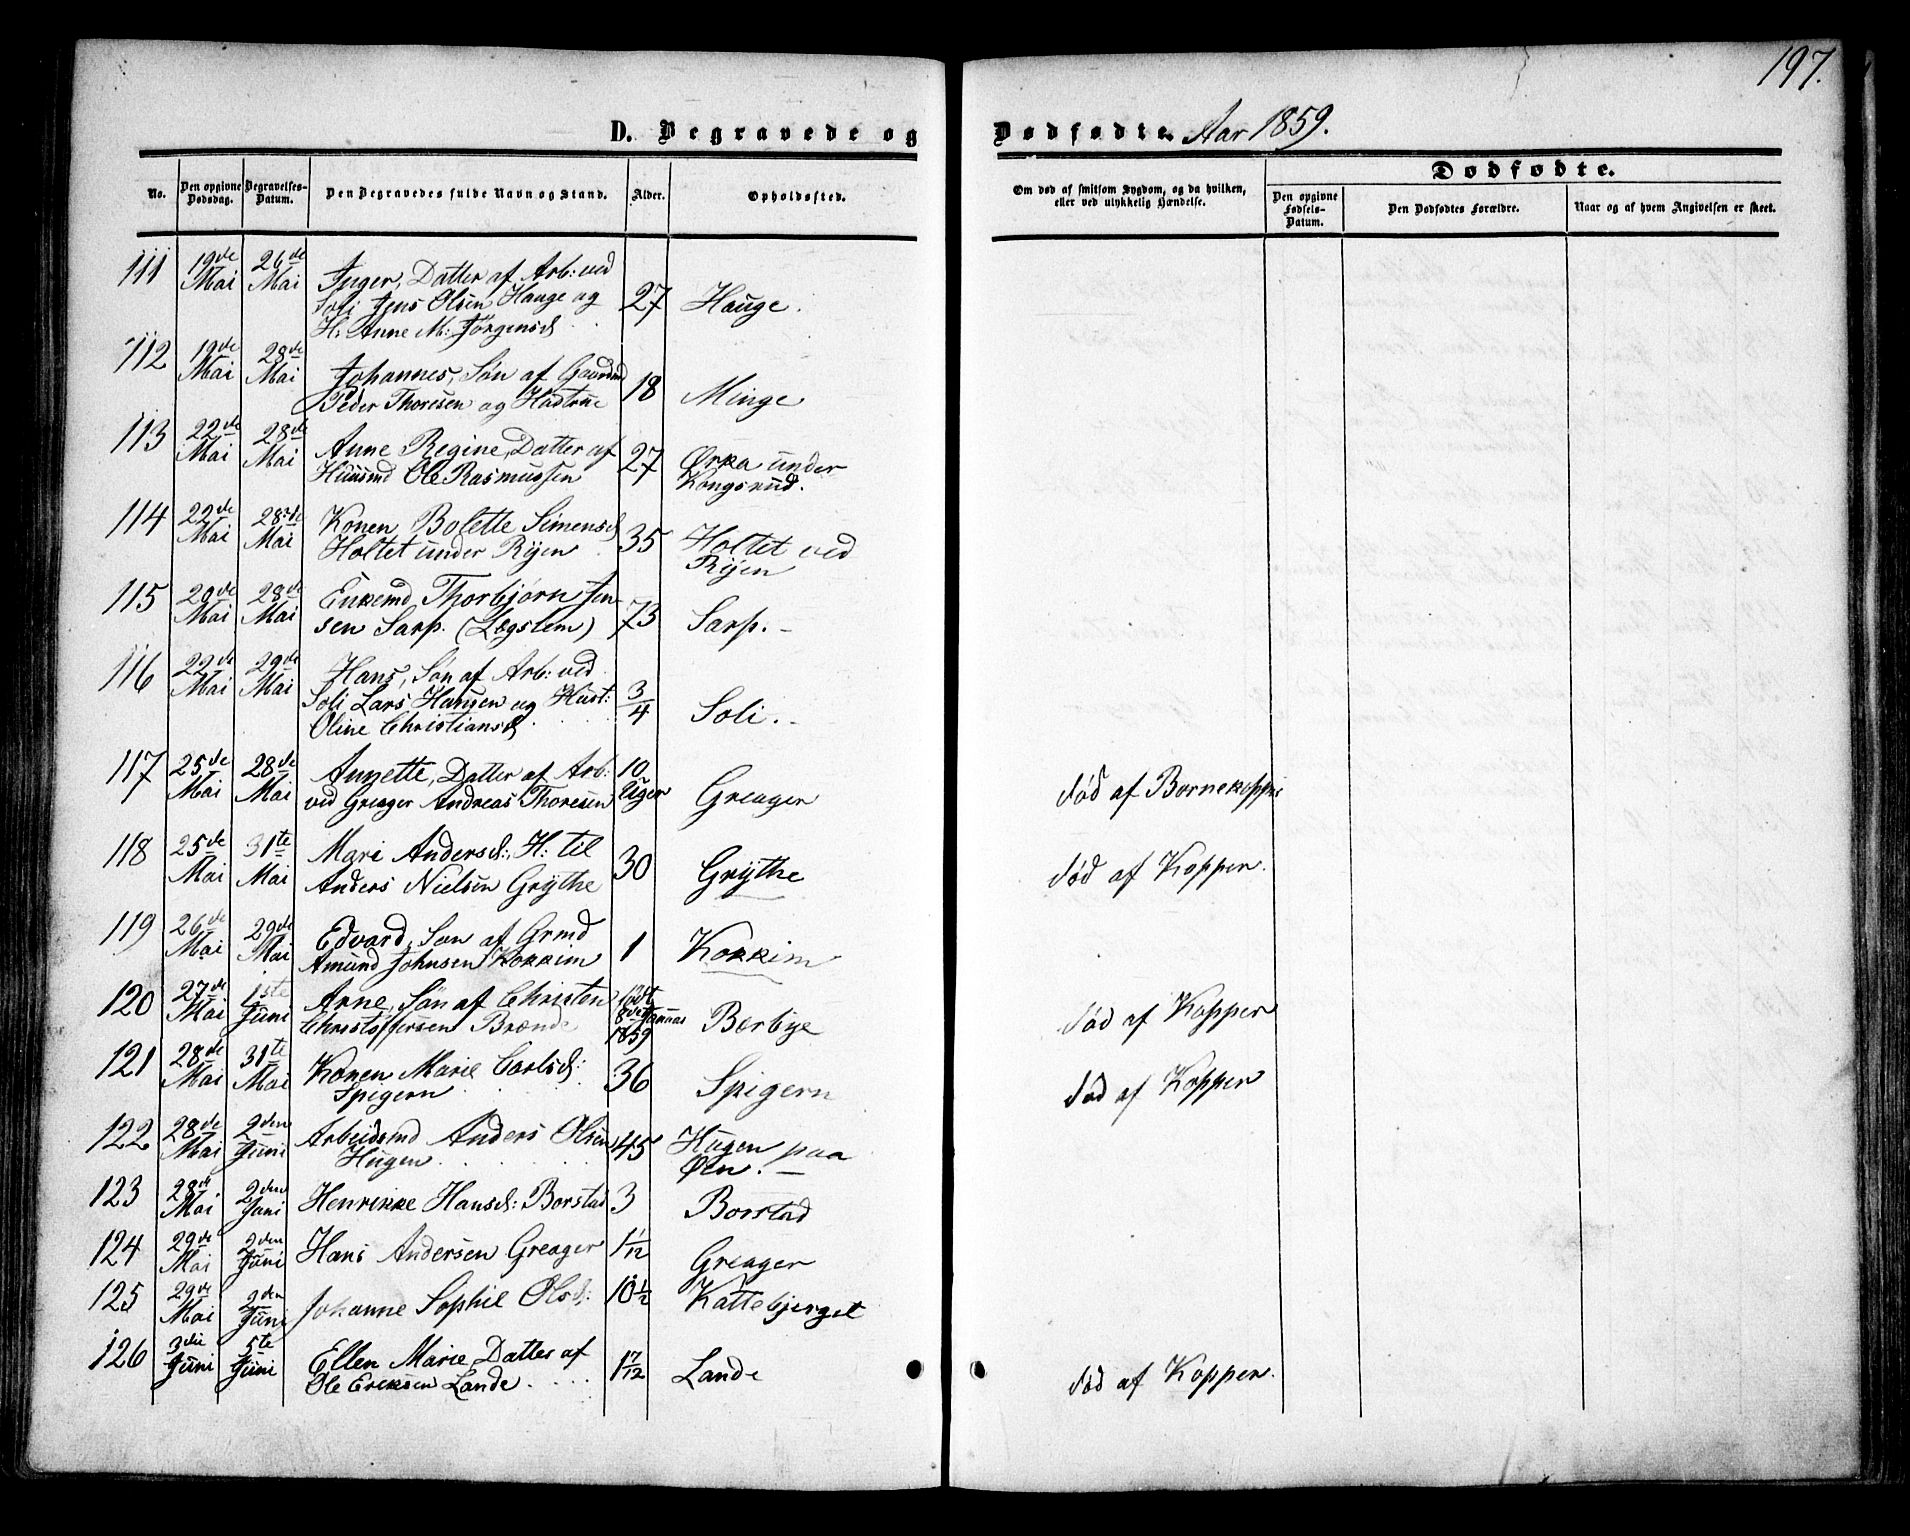 197.
D. Begravede og Dødfødte. Aar 1859.
No.
Den opgivne Dødsdag.
Begravelses-Datum.
Den Begravedes fulde Navn og Stand.
Alder.
Opholdssted.
Om død af smitsom Sygdom, og da hvilken, eller ved ulykkelig Hændelse.
Dødfødte.
Den opgivne Fødsels-Datum.
Den Dødfødtes Forældre.
Naar og af hvem Angivelsen er skeet.
111 19de Mai 26de Mai Inger, Datter af Arb: ved
Soli Jens Olsen Hauge og 27 Hauge.
H: Anne M: Jørgensd
112 19de Mai 28de Mai Johannes, Søn af Gaardmd
Peder Thoresen og Hustrue 18 Minge
113 22de Mai 28de Mai Anne Regine, Datter af
Huusmd Ole Rasmussen 27 Ørka under
Kongsrud.
114 22de Mai 28de Mai Konen Bolette Simensd
Holtet under Ryen 35 Holtet ved
Ryen
115 20de Mai 28de Mai Enkemd Thorbjørn Jen
sen Sarp. (Lægslem) 73 Sarp.
116 22de Mai 29de Mai Hans, Søn af Arb: ved
Soli Lars Hansen og Hust: 3/4 Soli.
Oline Christiansd
117 25de Mai 28de Mai Annette, Datter af Arb: 10
ved Greager Andreas Thoresen Uger Greager død af Børnekopper
118 25de Mai 31te Mai Mari Andersd:, H: til
Anders Nielsen Grythe 30 Grythe død af Kopper.
119 26de Mai 29de Mai Edvard, Søn af Grmd
Amund Johnsen Kokkim 1 Kokkim
120 27de Mai 1ste Juni Arne, Søn af Christen født
Christoffersen Brænde 8de Januar 1859 Bærbye død af Kopper
121 28de Mai 31te Mai Konen Marie Carlsd:
Spigern 36 Spigern død af Kopper
122 28de Mai 2den Juni Arbeidsmd Anders Olsen
Hugen 45 Hugen paa
Øen.
123 28de Mai 2den Juni Henrikke Hansd: Borstad 3 Borstad
124 29de Mai 2den Juni Hans Andersen Greager 1 1/12 Greager
125 29de Mai 2den Juni Johanne Sophie Olsd: 10 1/2 Kattebjerget
126 3die Juni 5te Juni Ellen Marie, Datter af
Ole Eriksen Lande 1 7/12 Lande død af Kopper.